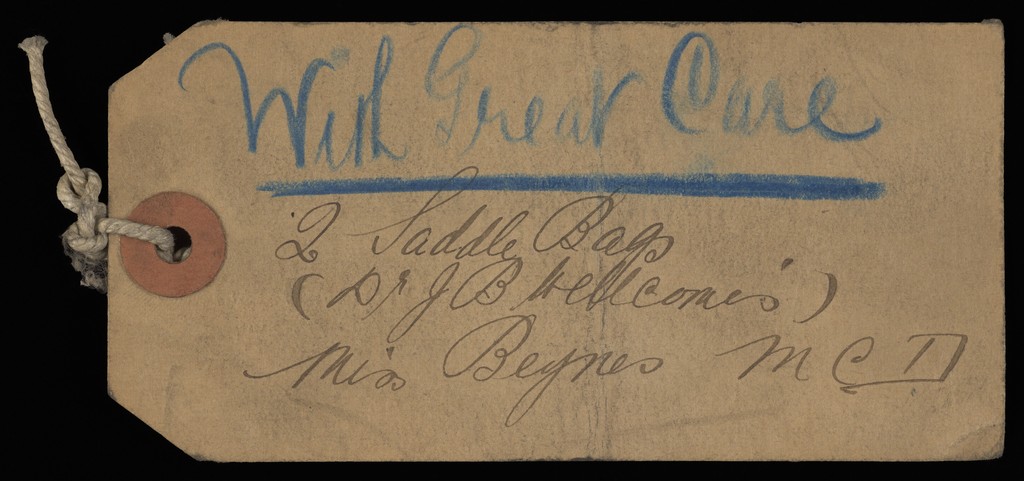 With Great Care
2 Saddle Bags
(Dr J B Wellcome's)
Miss Beynes M C D